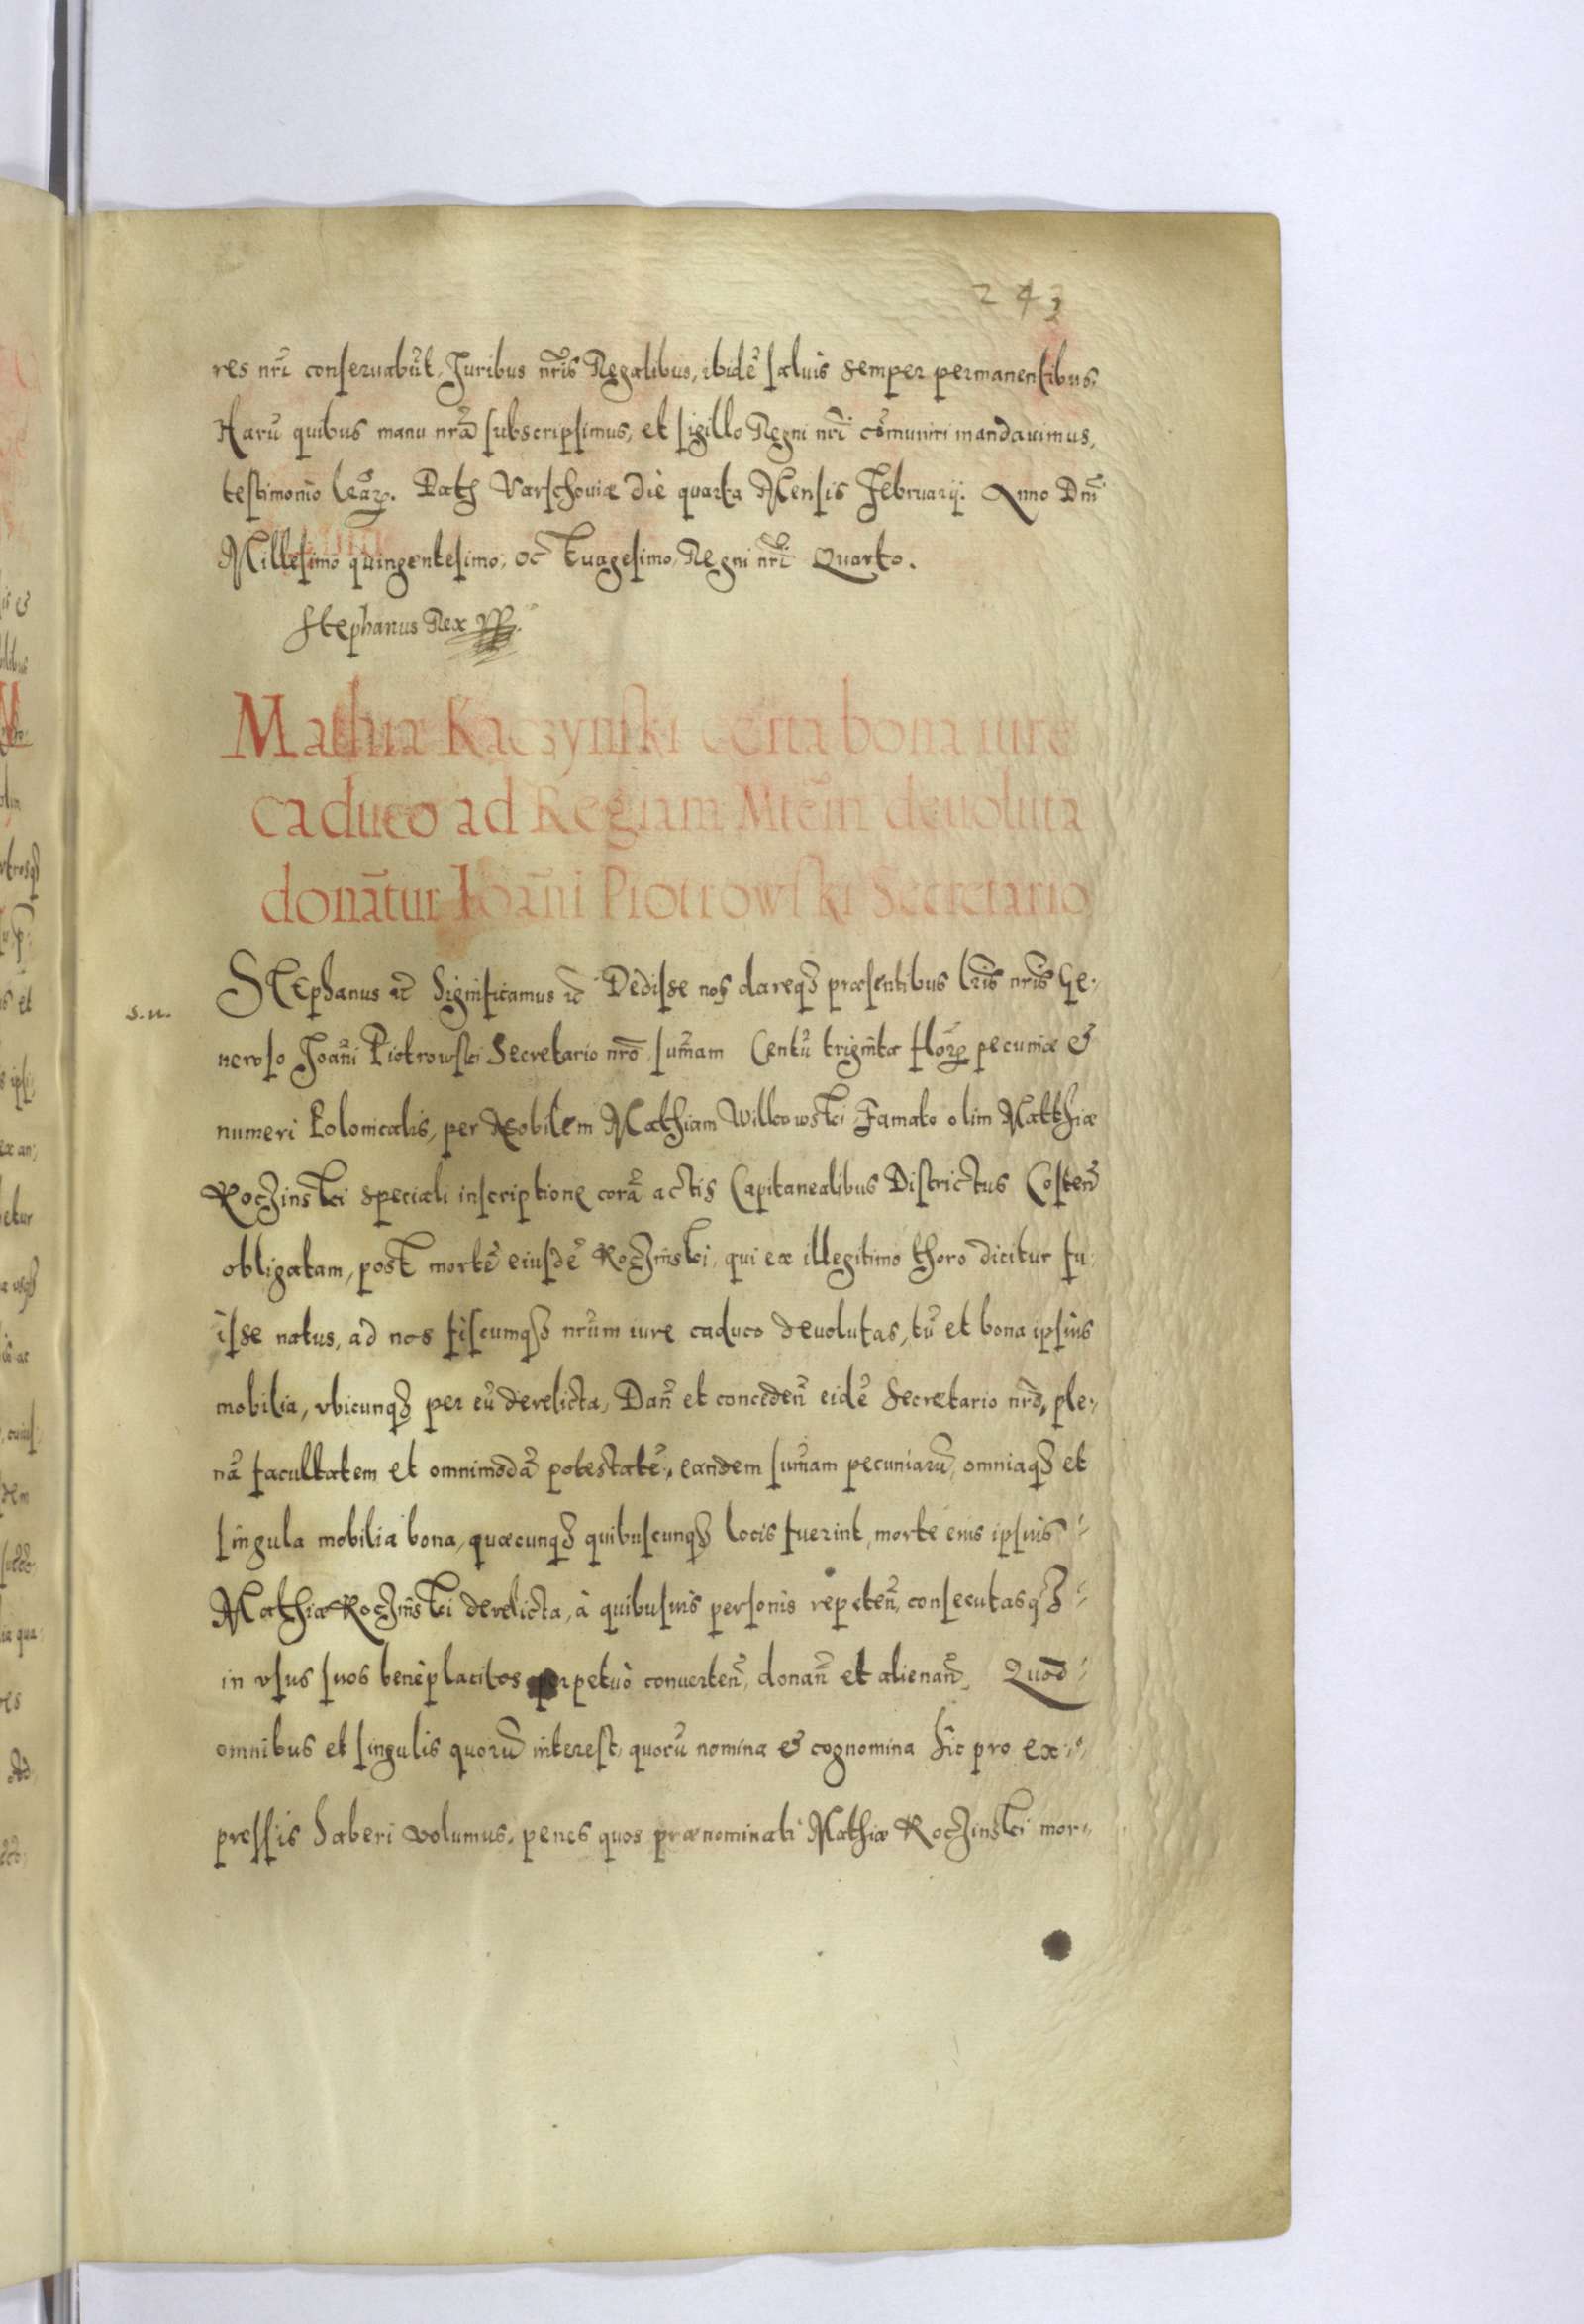 243
res nrĩ conseruabũt, Juribus nrĩs Regalibus, ibidẽ saluis semper permanentibus.
Harũ quibus manu nrã subscripsimus, et sigillo Regni nrĩ cõmuniri mandauimus,
testimonio lrãꝝ. Dath Varschouiæ die quarta Mensis Februarij. Anno Dnĩ
Millesimo quingentesimo, octuagesimo, Regni nrĩ Quarto.
Stephanus Rex
Mathiæ Kaczynski certa bona iure
caduco ad Regiam Mtẽm deuoluta
donãtur Joãni Piotrowski Secretario
s. n.
Stephanus ꝛc Significamus ꝛc Dedisse nos dareqꝫ præsentibus lrĩs nrĩs Ge-
neroso Joãni Piotrowski Secretario nrõ, sum̃am Centũ triginta florꝝ pecuniæ &
numeri Polonicalis, per Nobilem Mathiam Wilkowski, Famato olim Matthiæ
Koczinski speciali inscriptione corã actis Capitanealibus Districtus Costeñ
obligatam, post mortẽ eiusdẽ Koczinski, qui ex illegitimo thoro dicitur fu-
isse natus, ad nos fiscumqꝫ nrũm iure caduco deuolutas, tũ et bona ipsius
mobilia, vbicunqꝫ per eũ derelicta, Dañ et concedeñ eidẽ Secretario nrõ, ple-
nã facultatem et omnimodã potestatẽ, eandem sum̃am pecuniarũ, omniaqꝫ et
singula mobilia bona, quæcunqꝫ quibuscunqꝫ locis fuerint, morte eius ipsius
Mathiæ Koczinski derelicta, à quibusuis personis repeteñ, consecutasqꝫ
in vsus suos beneplacitos perpetuò conuerteñ, donañ et alienañ. Quod
omnibus et singulis quorũ interest, quorũ nomina & cognomina sic pro ex-
pressis haberi volumus, penes quos prænominati Mathiæ Koczinski mor-